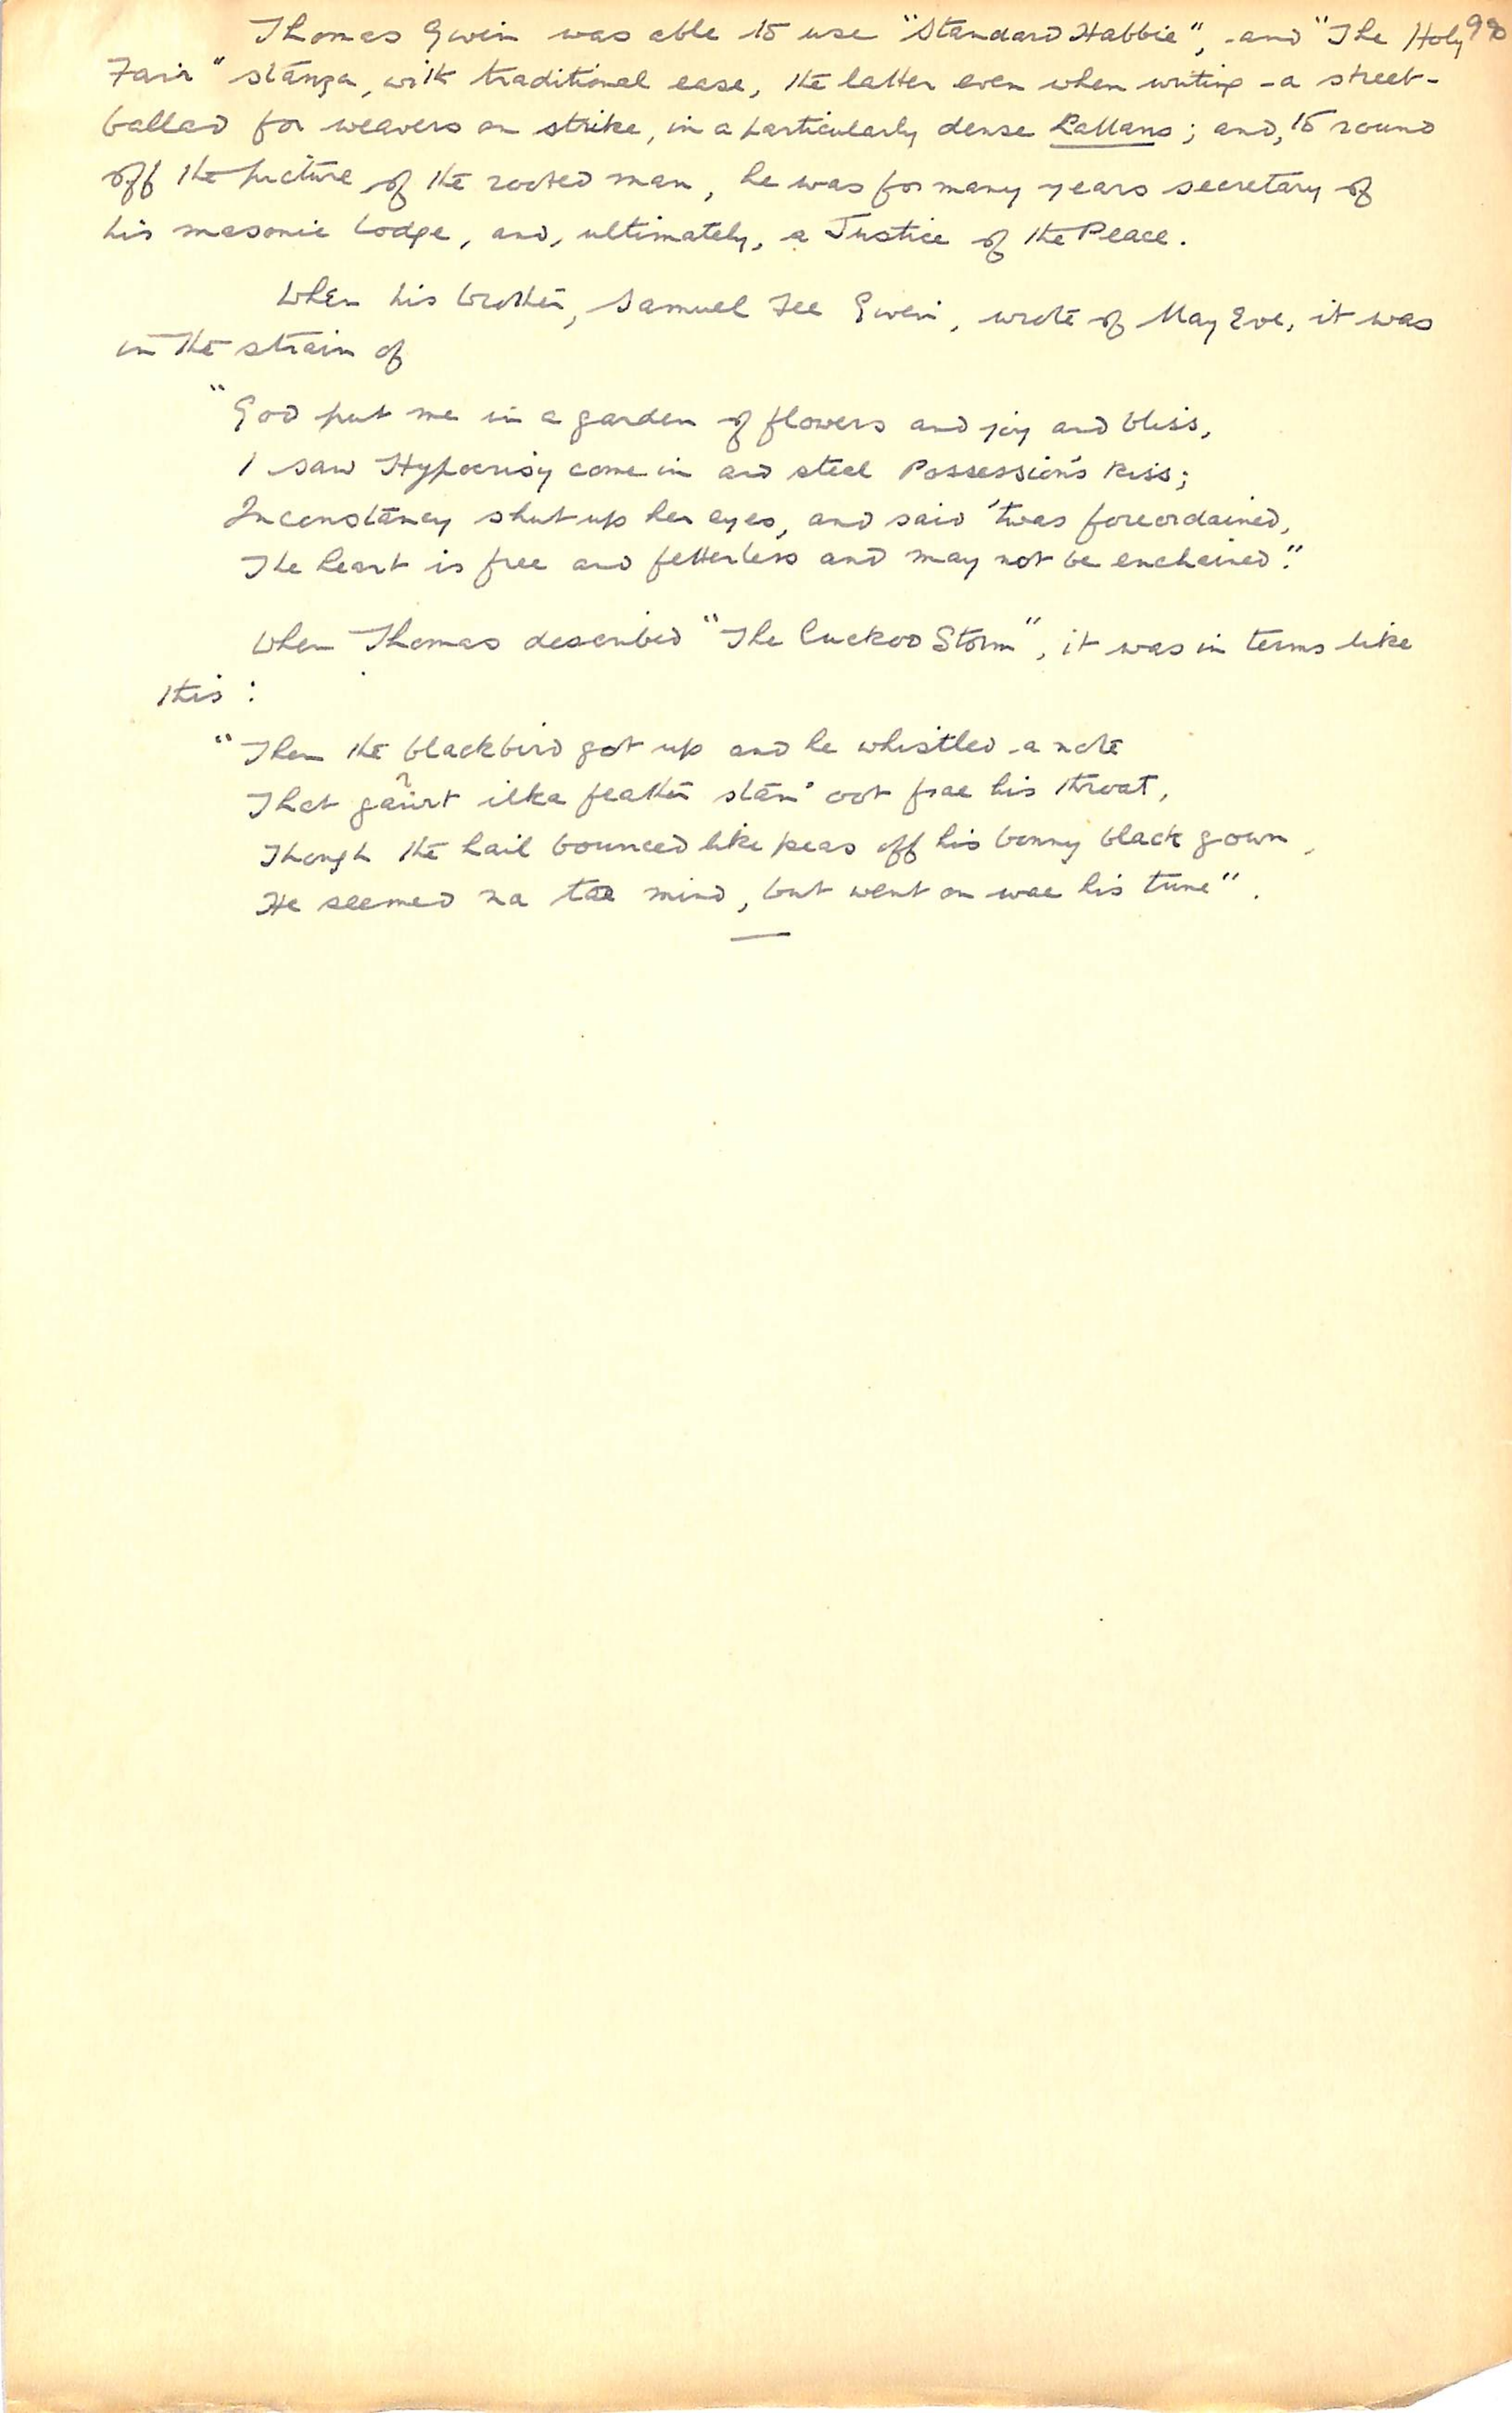 Thomas Given was able to use "Standard Habbie", and "The Holy
Fair" stanza, with traditional ease, the latter even when writing a street-
ballad for weavers on strike, in a particularly dense Lallans; and, to round
off the picture of the rooted man, he was for many years secretary of
his masonic lodge, and, ultimately, a Justice of the Peace.
When his brother, Samuel Fee Given, wrote of May Eve, it was
in the strain of
"God put me in a garden of flowers and joy and bliss,
I saw Hypocrisy come in and steal Possession's kiss;
Inconstancy shut up her eyes, and said 'twas foreordained,
The heart is free and fetterless and may not be enchained."
When Thomas described "The Cuckoo Storm", it was in terms like
this :
"Then the blackbird got up and he whistled a note
That ilka feather stan' oot frae his throat,
Though the hail bounced like peas off his bonny black gown,
He seemed na tae mind, but went on wae his tune".